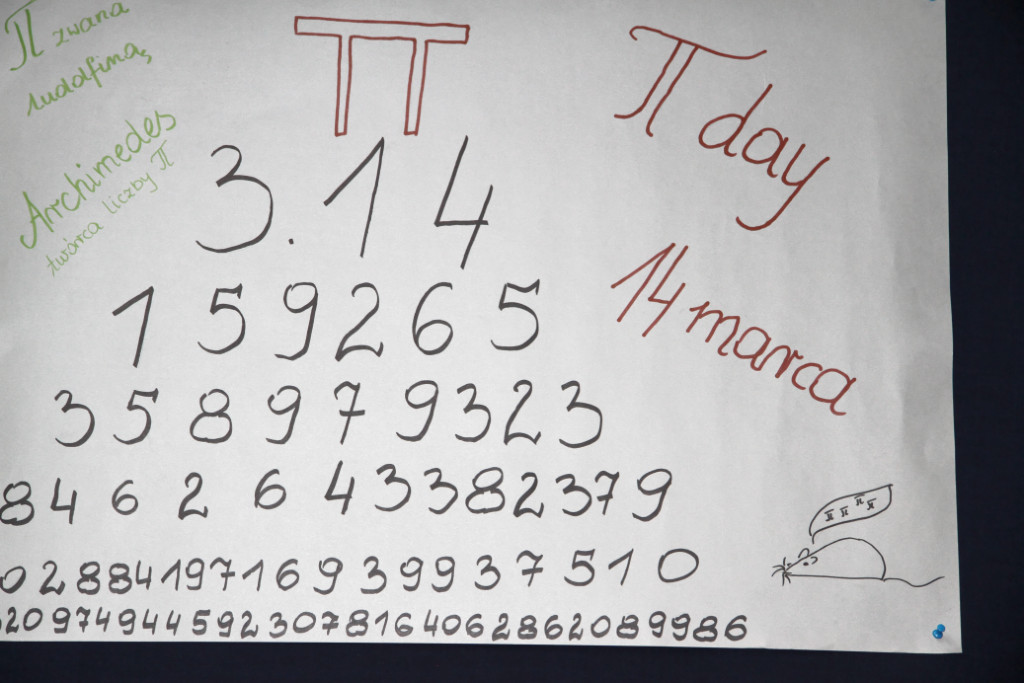 π zwana
ludolfiną
Archimedes
twórca liczby π
π
π day
14 marca
3.14
159265
358979323
8462643382379
0288419716939937510
20974944592307816406286208998 6
π π π π